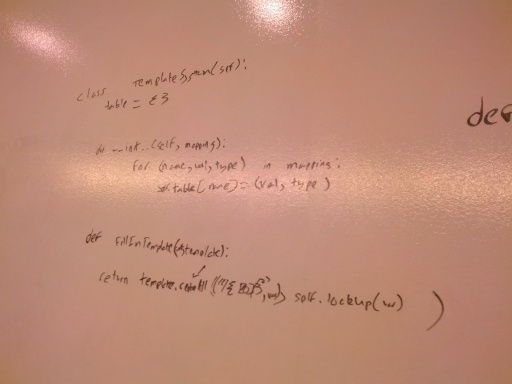 class TemplateSystem(self):
table = {}
def __init__(self, mapping):
for (name, val, type) in mapping:
self.table[name] = (val, type)
def
def fillInTemplate(template):
return template. self.lookup( )